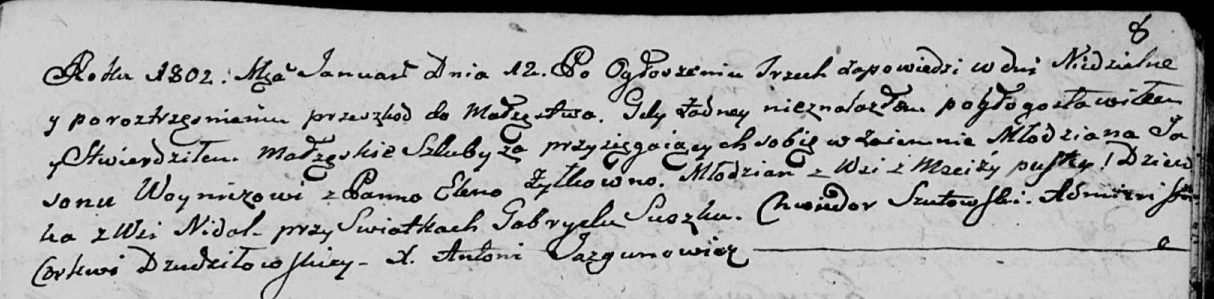 8
Roku 1802. Mca Januar Dnia 12. Po Ogłoszeniu Trzech zapowiedzi w dni Nidzielne
y poroztrzęsnieniu przeszkod do Małzęstwa. Gdy Żadney nieznalazłem pobłogosławiłem
y Stwierdziłem Małzęskie Szluby za przysięgaiących sobie wzaiemnie Młodziana Ja
sonu Woynizowi z Panno Eleno Żyłkowno. Młodzian z Wsi z Mscizy pustey! Dziew
ka z Wsi Nidal. przy Swiatkach Gabryelu Suszku. Chwiedor Szutowski. Administr
Cerkwi Dzudziłowskiey - X. Antoni Jazgunowicz